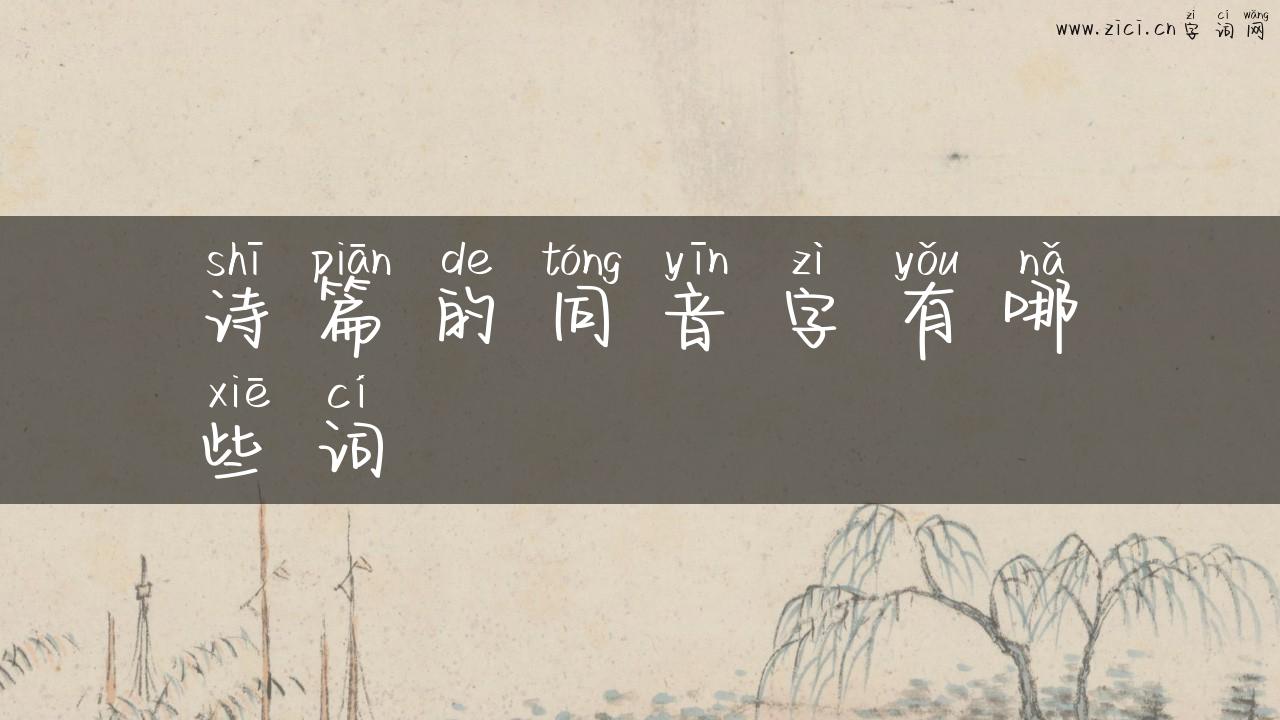 zì cí wǎng
www.zici.cn 字词网
shī piān de tóng yīn zì yǒu nǎ
诗篇的同音字有哪
xiē cí
些词